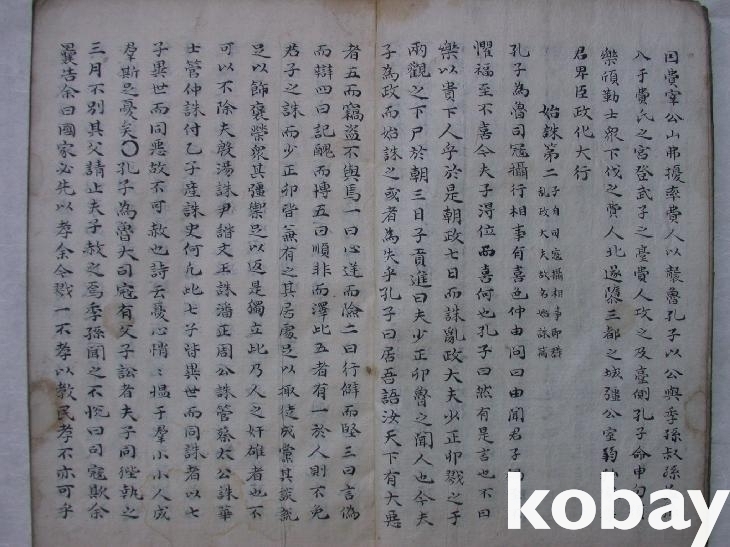 因費宰公山弗擾率費人以襲魯孔子以公與季孫叔孫
入于費氏之宮登武子之臺費人攻之及臺側孔子命申句
樂頎勒士衆下伐之費人北遂隳三都之城彊公室
君卑臣政化大行
始誅第二
子自司寇攝相事即
乱政大夫故名始誅
孔子為魯司寇攝行相事有喜色仲由問曰由聞君子
懼福至不喜今夫子得位而喜何也孔子曰然有是言也不曰
樂以貴下人乎於是朝政七日而誅亂政大夫少正卯戮之于
兩觀之下尸於朝三日子貢進曰夫少正卯魯之聞人也今夫
子為政而始誅之或者為失乎孔子曰居吾語汝天下有大惡
者五而竊盜不與焉一曰心逆而險二曰行僻而堅三曰言偽
而辯四曰記醜而博五曰順非而澤此五者有一於人則不免
君子之誅而少正卯皆無有之其居處足以掫徒成黨其談說
足以飾褒榮衆其彊禦足以返是獨立此乃人之奸雄者也不
可以不除夫殷湯誅尹諧文王誅潘正周公誅管蔡太公誅華
士管仲誅付乙子産誅史何凡此七子皆異世而同誅者以七
子異世而同惡故不可赦也詩云憂心悄〻慍于羣小小人成
羣斯足憂矣〇孔子為魯大司寇有父子訟者夫子同狴執之
三月不別其父請止夫子赦之焉季孫聞之不悅曰司寇欺余
曩告余曰國家必先以孝余今戮一不孝以教民孝不亦可乎
kobay